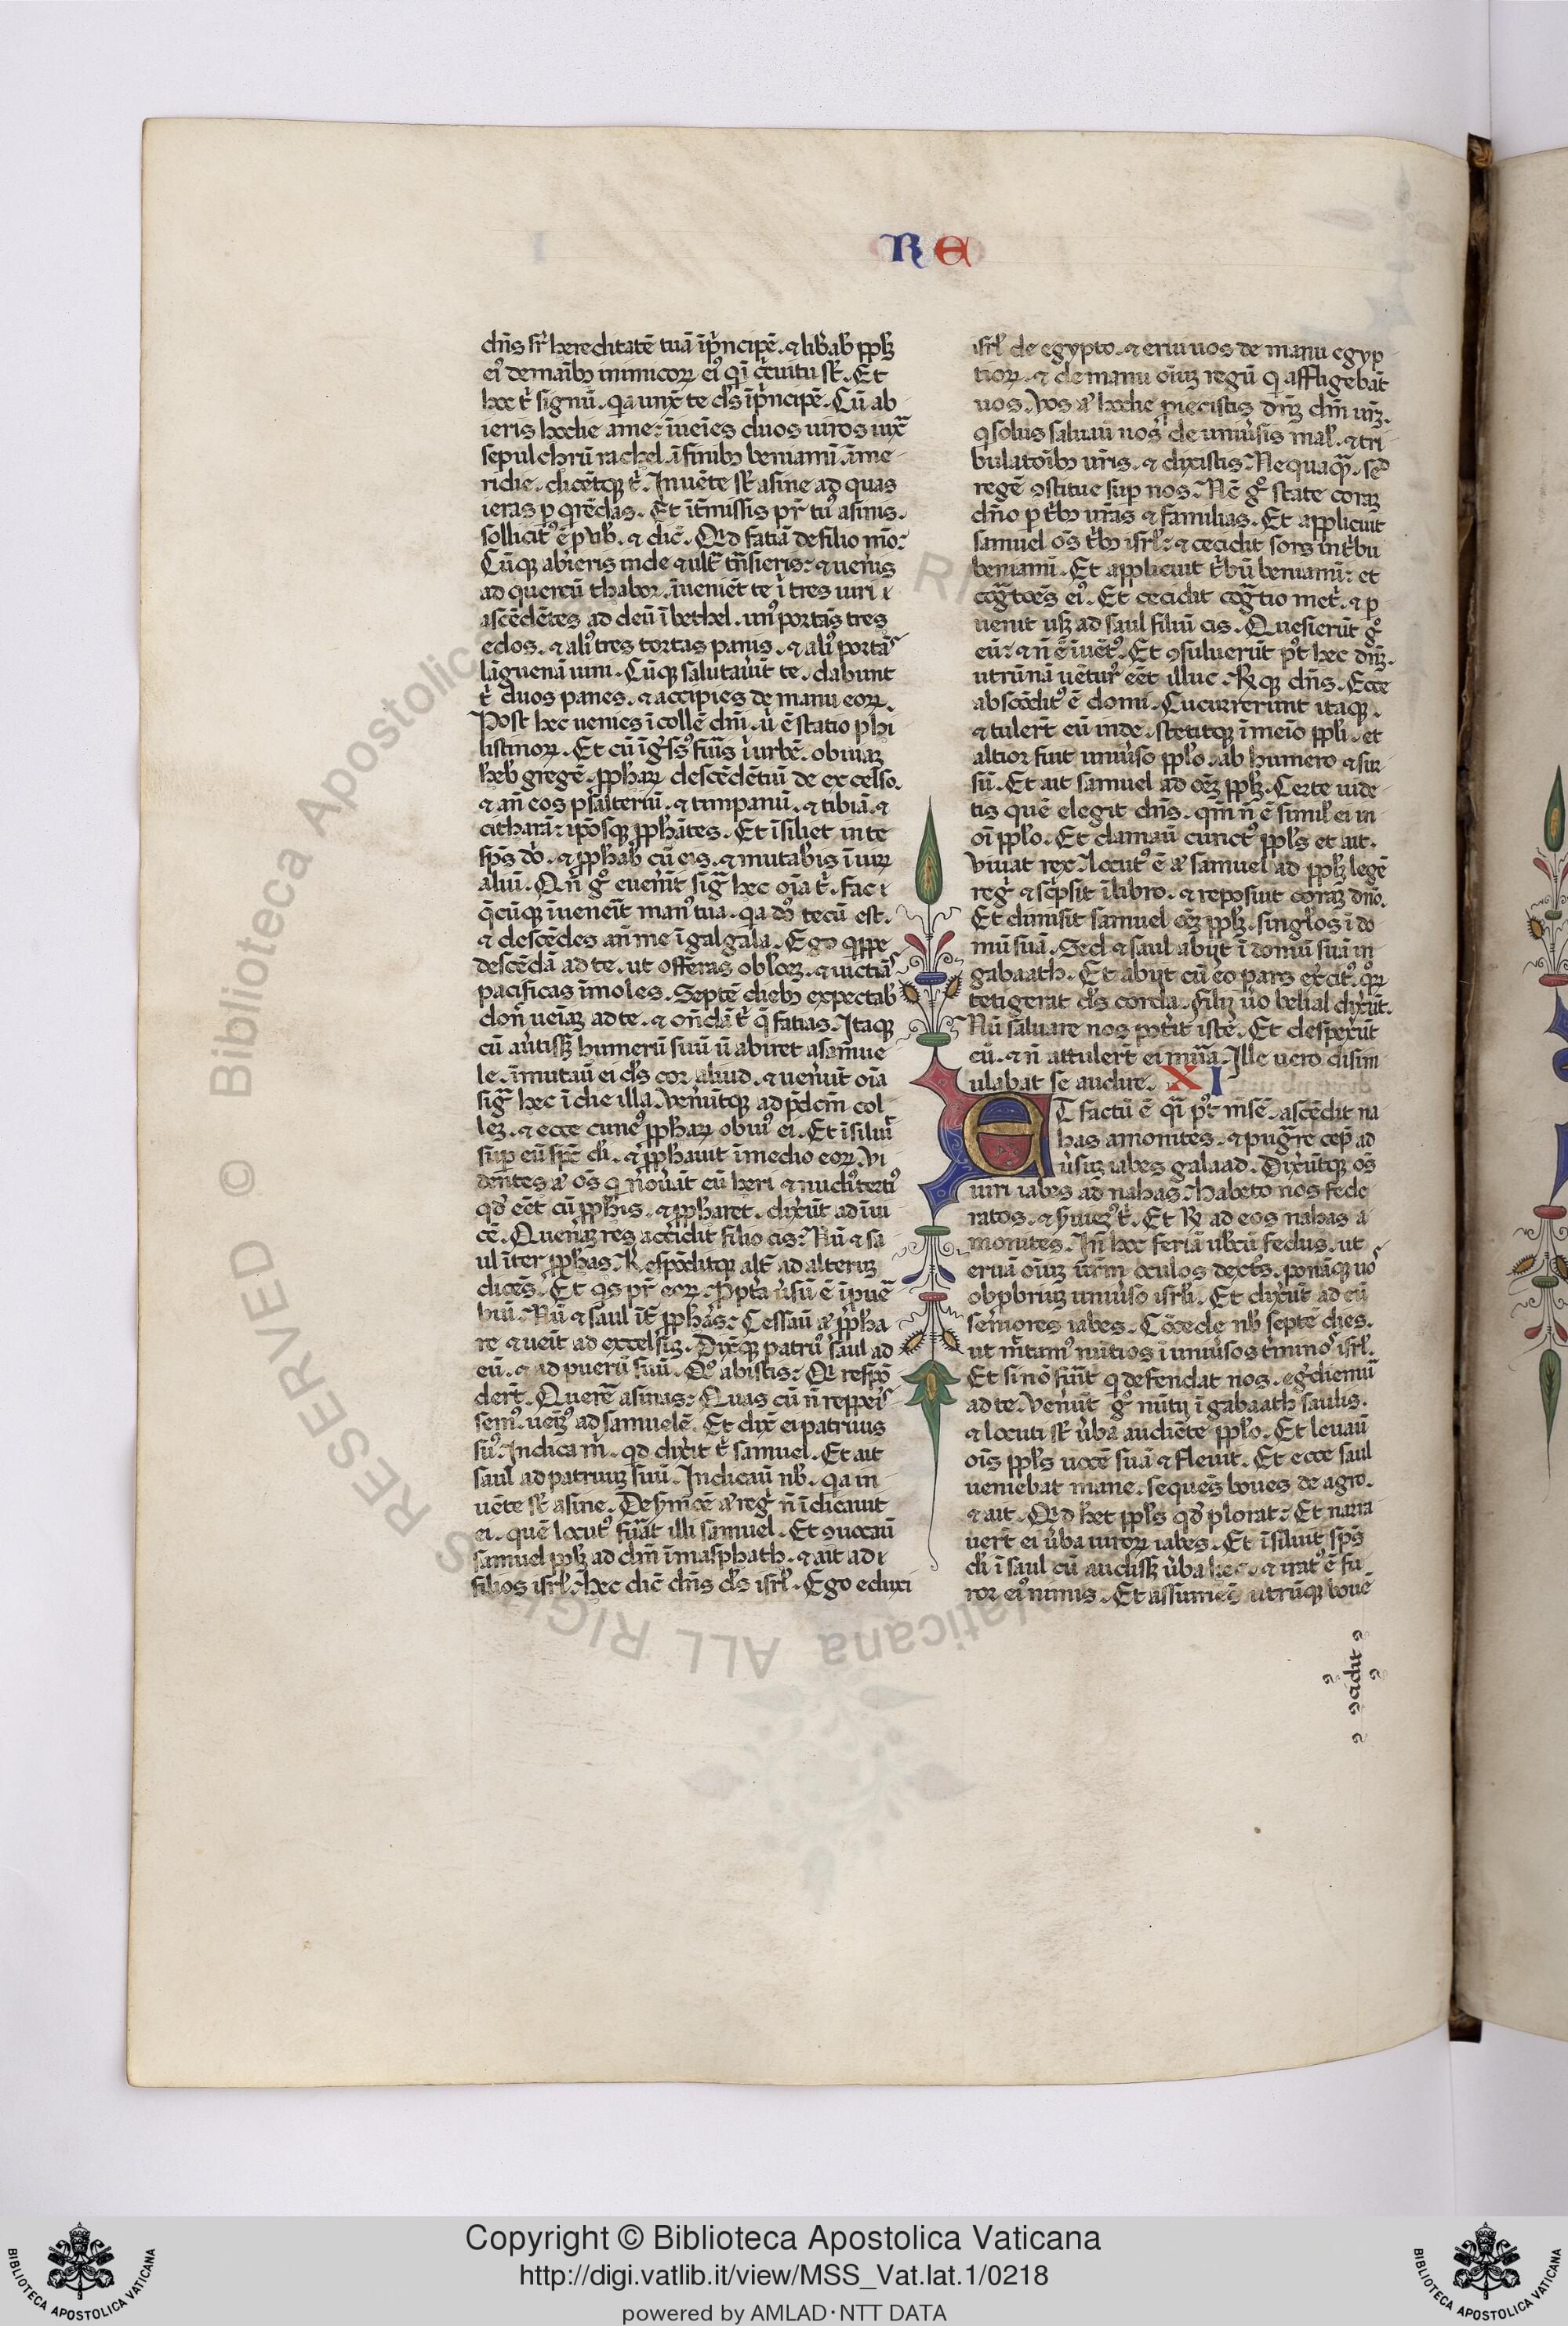 RE
dn̄s sr̄ hereditatē tuā ī pͥncipē. ⁊ lib̾ab̾ pp̄lꝫ
ei᷒ de manib᷒ inimicoꝝ ei᷒ qͥ ī c̾cuitu st̄. Et
hoc t̾ signū. qa unx̄ te d̄s ī pͥncipē. Cū ab
ieris hodie a me: īueīes duos uiros iux̄
sepulchrū rachel. ī finib᷒ beniamī. ī me
ridie. dicētqꝫ t̾. Inuēte st̄ asine ad quas
ieras ꝑq̾rēdas. Et īt̾missis pr̄ tu᷒ asinis.
sollicit᷒ ē ꝓ uob̾. ⁊ dic̄. Qͥd fatiā de filio mō:
Cūqꝫ abieris inde ⁊ ult̾ trāsieris: ⁊ uen̾is
ad quercū thabor. īueniēt te ī tres uiri
ascēdētes ad deū ī bethel. un᷒ portās tres
edos. ⁊ ali᷒ tres tortas panis. ⁊ ali᷒ portās
lāguenā uini. Cūqꝫ salutau̾īt te. dabunt
t̾ duos panes. ⁊ accipies de manu eoꝝ.
Post hec uenies ī collē dn̄i. u̾ ē statio phi
listinoꝝ. Et cū īg̾ss᷒ fu̾is ī urbē. obuiaꝫ
heb̾ gregē. ꝓphaꝝ descēdētiū de excelso.
⁊ an̄ eos psalteriū. ⁊ timpanū. ⁊ tibiā. ⁊
citharā: ipōsqꝫ ꝓphātes. Et īsiliet in te
sp̄s dn̄i. ⁊ ꝓphab̾ cū eis. ⁊ mutab̾is ī uiꝝ
aliū. Qn̄ gͦ euen̾īt sig̾ hec oīa t̾. fac
q̄cūqꝫ īuenīt man᷒ tua. qa dn̄s tecū est.
⁊ descēdes an̄ me ī galgala. Ego qͥppe
descēdā ad te. ut offeras obl̾oēꝫ. ⁊ uictiās
pacificas īmoles. Septē dieb᷒ expectab̾
don̄ ueīaꝫ ad te. ⁊ on̄dā t̾ q̄ fatias. Itaqꝫ
cū au̾tissꝫ humerū suū ut abiret a samue
le: īmutauī ei d̄s cor aliud. ⁊ uen̾ūt oīa
sig̾ hec ī die illa. Uen̾ūtqꝫ ad p̄dc̄m col
leꝫ. ⁊ ecce cune᷒ ꝓphaꝝ obui᷒ ei. Et īsiluī
sup̄ eū sp̄s dī. ⁊ ꝓphauit ī medio eoꝝ. Vi
dētes aͥ oēs qͥ nou̾āt eū heri ⁊ nudi᷒terti᷒
qd̾ eēt cū ꝓphis. ⁊ ꝓpharet. dix̾ūt ad īui
cē. Quenāꝫ res accidit filio cis: Nū ⁊ sa
ul īter ꝓphas. Respōditqꝫ alt̾ ad alteruꝫ
dicēs. Et qͥs pr̄ eoꝝ. Ꝓpt̾a u̾sū ē ī ꝓue
biū. Nū ⁊ saul īt̾ ꝓphas: Cessauī aͥ ꝓpha
re ⁊ uenit ad excelsuꝫ. Dix̾qꝫ patru᷒ saul ad
eū. ⁊ ad puerū suū. Qͦ abistis: Qͥ respō
der̄t. Quere asinas: Quas cū n̄ reppeīs
sem᷒. ueīm᷒ ad samuelē. Et dix̄ ei patruus
su᷒. Indica m̾. qd dix̾it t̾ samuel. Et ait
saul ad patruuꝫ suū. Indicauī nb̾. qa in
uēte st̄ asine. De sermōe aͥ reg̾ n̄ īdicauit
ei. quē locut᷒ fu̾at illi samuel. Et ꝯuocauī
samuel pplꝫ ad dn̄m ī masphath. ⁊ ait ad
filios isrl̾. Hec dic̄ dn̄s d̄s isrl̾. Ego eduxi
isrl̾ de egypto. ⁊ erui uos de manu egyp
tioꝝ. ⁊ de manu oīuꝫ regū qͥ affligebāt
uos. Vos aͥ hodie ꝓiecistis dn̄ꝫ dm̄ ur̄ꝫ.
qͥ solus saluauī uos de uniu̾sis mal̾. ⁊ tri
bulatōib᷒ ur̄is. ⁊ dixistis. Nequaqꝫ. sꝫ
regē ꝯstitue sup̄ nos. Nc̄ gͦ state coraꝫ
dn̄o ꝑ t̾b᷒ ur̄as ⁊ familias. Et applicuit
samuel oēs t̾b᷒ isrl̾: ⁊ cecidit sors ī t̾bu
beniamī. Et applicuit t̾bū beniamī: et
cog̾tōes ei᷒. Et cecidit cog̾tio met̾. ⁊ ꝑ
uenit usqꝫ ad saul filiū cis. Quesierūt gͦ
eū: ⁊ n̄ ē īuēt᷒. Et ꝯsuluerūt pt̾ hec dn̄ꝫ.
utrūnā uētur᷒ eēt illuc. Rͣqꝫ dn̄s. Ecce
abscōdit᷒ ē domi. Cucurrerunt itaqꝫ.
⁊ tuler̄t eū inde. stetitqꝫ ī meīo ppl̾i. et
altior fuit uniu̾so ppl̾o. ab humero ⁊ sur
sū. Et ait samuel ad oēꝫ pplꝫ. Certe uide
tis quē elegit dn̄s. qm̄ n̄ ē simil̾ ei in
oī ppl̾o. Et clamauī cunct᷒ ppl̾s et ait.
Viuat rex. Locut᷒ ē aͥ samuel ad pplꝫ legē
reg̾ ⁊ sc̾psit ī libro. ⁊ reposuit coraꝫ dn̄o.
Et dimisit samuel oēꝫ pplꝫ. singl̾os ī do
mū suā. Sed ⁊ saul abijt ī domū suā in
gabaath. Et abijt cū eo pars ex̾cit᷒. qͦꝝ
tetigerat d̄s corda. Filij uo belial dix̾ūt.
Nū saluare nos pot̾it iste. Et despex̾ūt
eū. ⁊ n̄ attuler̄t ei mūa. Ille uero disim
ulabat se audire. XI
ET factū ē qͣi pt̾ mēsē. ascēdit na
has amonites. ⁊ pug̾re cep̄ ad
u̾suꝫ iabes galaad. Dix̾ūtqꝫ oēs
uiri iabes ad nahas. Habeto nos fede
ratos. ⁊ s̾uiem᷒ t̾. Et Rͣ ad eos nahas a
monites. In hoc feriā ub̾cū fedus. ut
eruā oīuꝫ ur̄m oculos dext̾s. ponāqꝫ uos
obp̾briuꝫ uniu̾so isrl̾i. Et dix̾ūt ad eū
seniores iabes. Cōcede nb̾ septē dies.
ut mittam᷒ nūtios ī uniu̾sos t̾mīos isrl̾.
Et si nō fu̾it qͥ defendat nos. eg̾diemur
ad te. Uen̾ūt gͦ nūtij ī gabaath saulis.
⁊ locuti st̄ u̾ba audiēte ppl̾o. Et leuauī
oīs ppl̾s uocē suā ⁊ fleuit. Et ecce saul
ueniebat mane. sequēs boues de agro.
⁊ ait. Qͥd het ppl̾s qd̾ plorat: Et narra
uer̄t ei u̾ba uiroꝝ iabes. Et īsiluit sp̄s
dī ī saul cū audissꝫ u̾ba hec. ⁊ irat᷒ ē fu
ror ei᷒ nimis. Et assumēs utrūqꝫ bouē
ꝯcidit
Copyright © Biblioteca Apostolica Vaticana
http://digi.vatlib.it/view/MSS_Vat.lat.1/0218
powered by AMLAD·NTT DATA